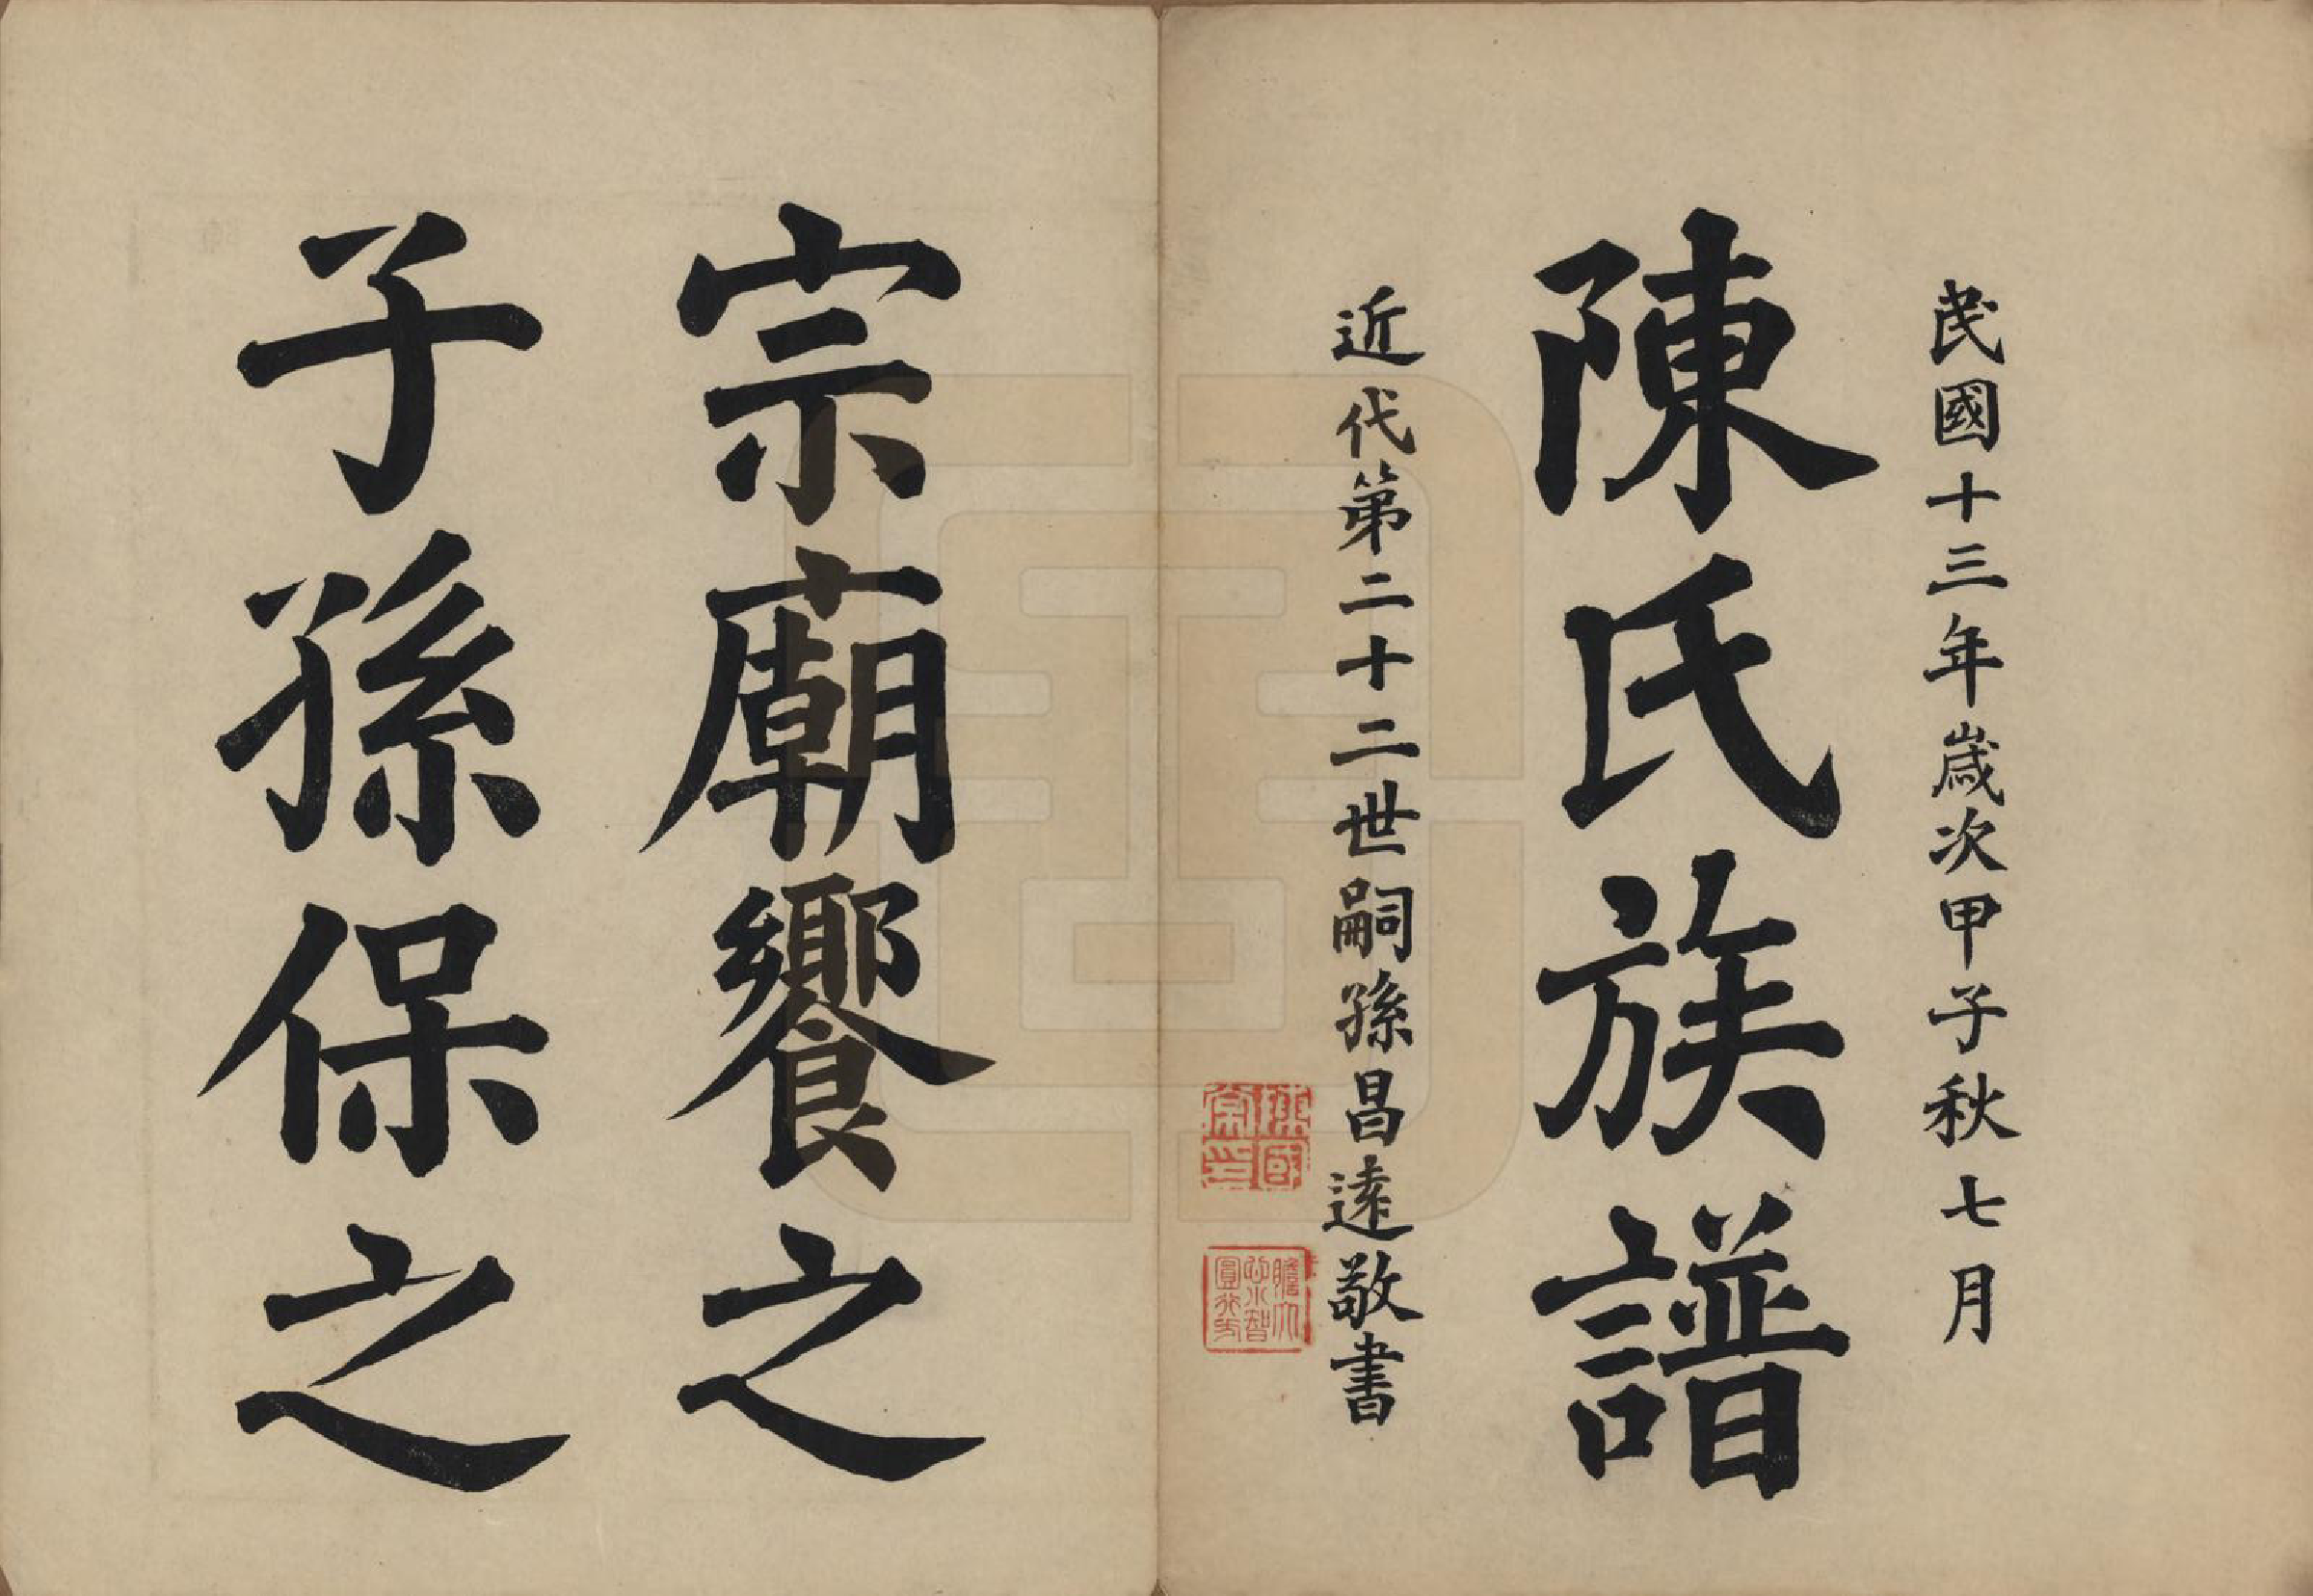 民國十三年歲次甲子秋七月
陳氏族譜
近代第二十二世嗣孫昌遠敬書
宗廟饗之
子孫保之